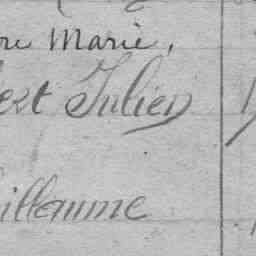 re Marie,
est Julien
illaume